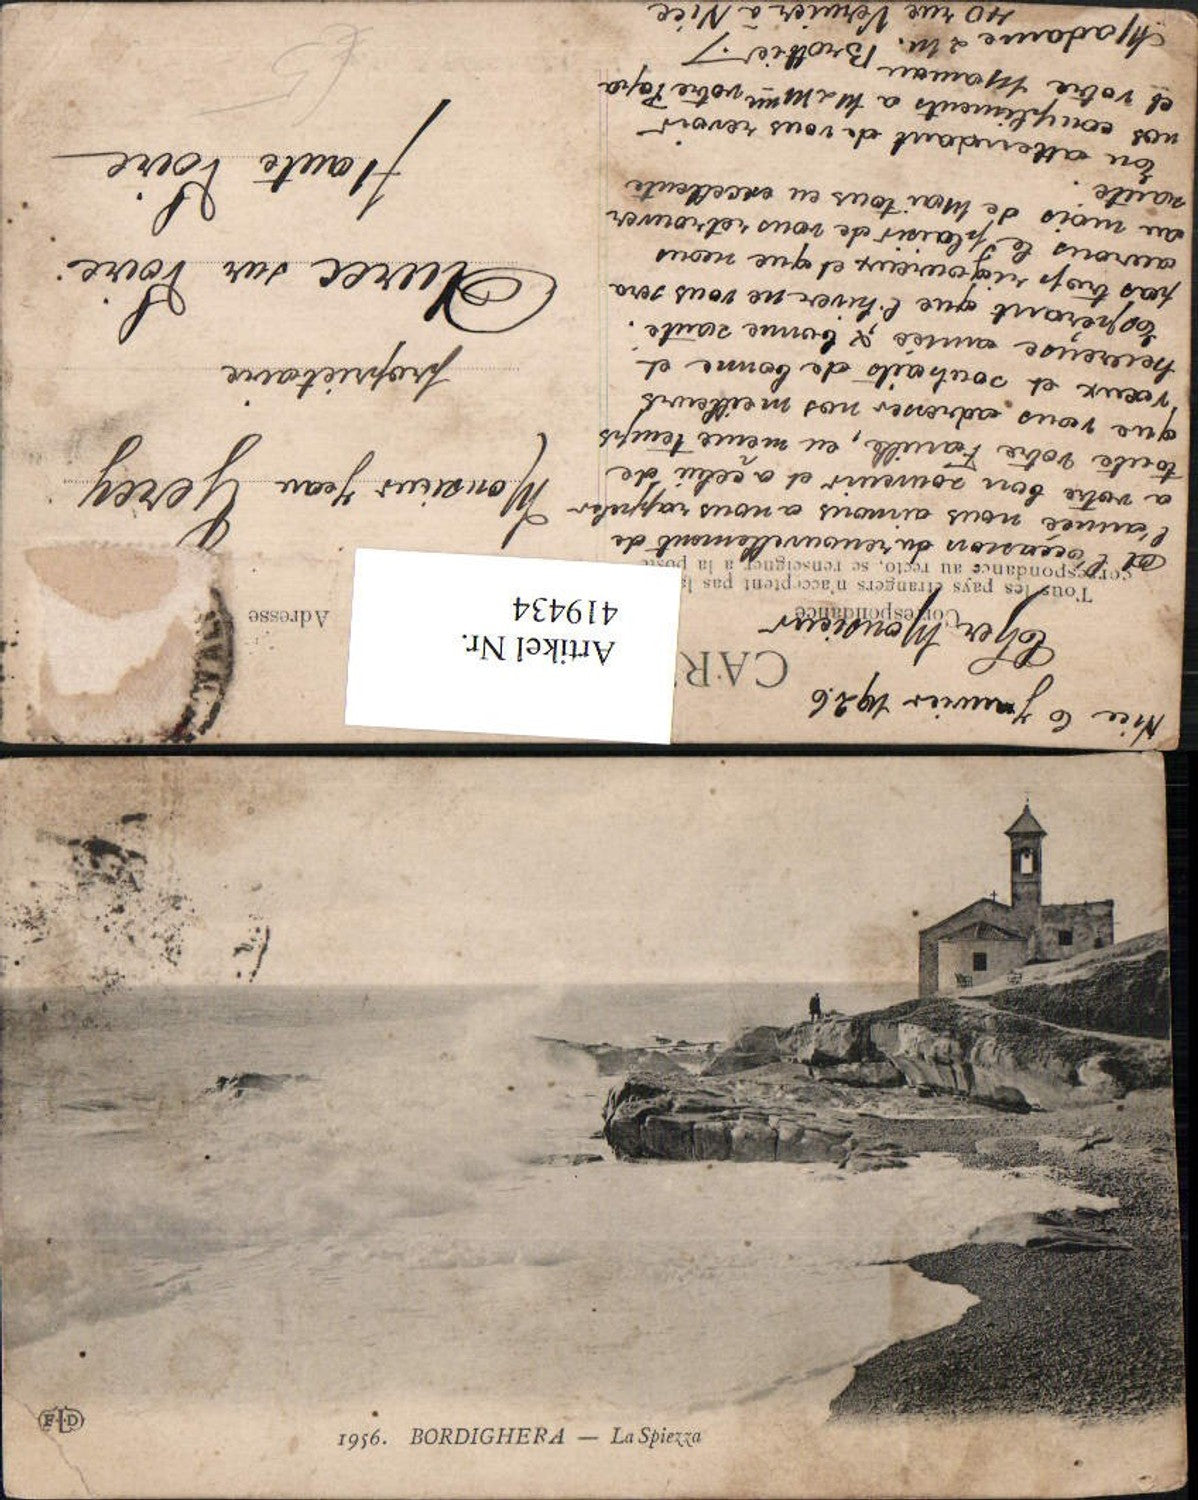 CAR
Correspondance
Adresse
Tous les pays étrangers n'acceptent pas la
correspondance au recto, se renseigner à la poste
Artikel Nr.
419434
Nice 6 Janvier 1926
Cher Monsieur
A l'occasion du renouvellement de
l'année nous aimons a nous rappeler
a votre bon souvenir et a celui de
toute votre Famille, en meme temps
que vous adresser nos meilleurs
vœux et souhaits de bonne et
heureuse année & bonne santé.
Espérant que l'hiver ne vous sera
pas trop rigoureux et que nous
aurons le plaisir de vous retrouver
au mois de Mai tous en excellente
santé.
En attendant de vous revoir
nos compliments a votre Papa
et votre Maman
Madame & M. Brothier
40 rue Vernier à Nice
Monsieur Jean Gerey
propriétaire
Aurec sur Loire
Haute Loire
1956. BORDIGHERA — La Spiezza
ELD